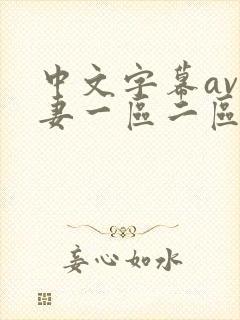 中文字幕av
妻一區二區
妾心如水